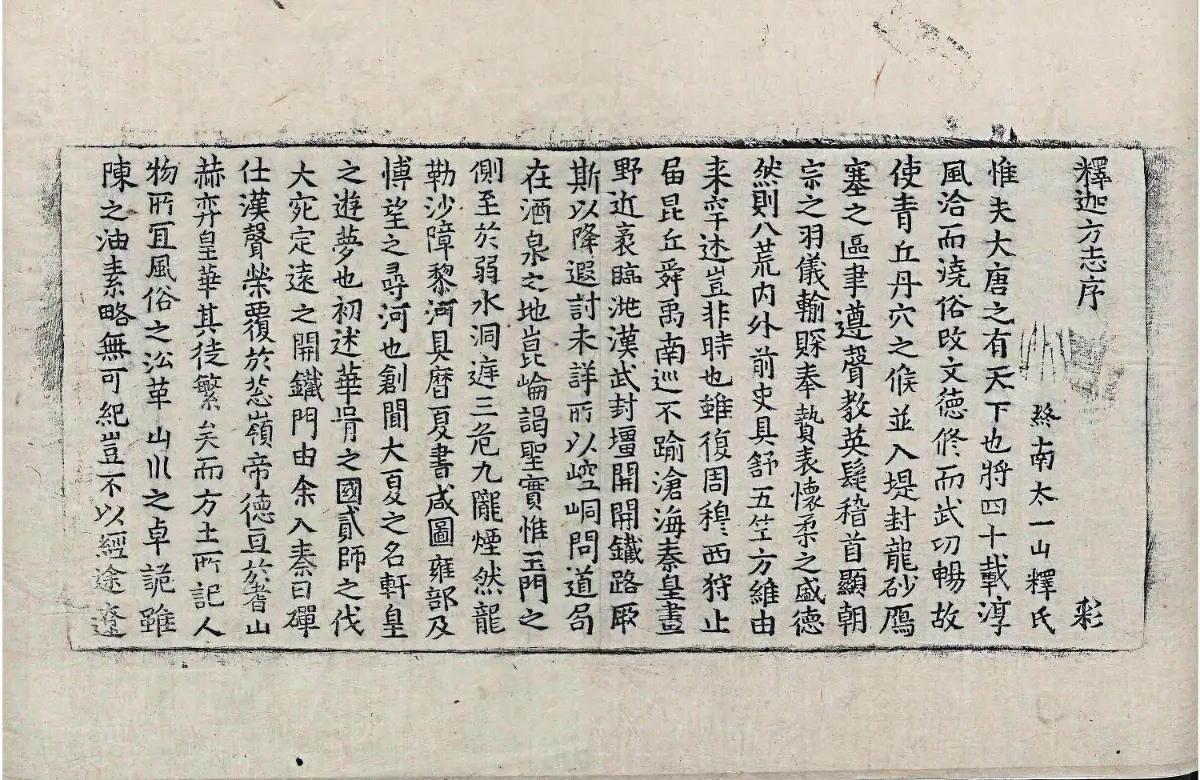 釋迦方志序 彩
終南太一山釋氏
惟夫大唐之有天下也將四十載淳
風洽而澆俗改文德修而武功暢故
使青丘丹穴之候並入堤封龍砂鴈
塞之區聿遵聲教英髦稽首顯朝
宗之羽儀輸賝奉贄表懷柔之盛德
然則八荒內外前史具舒五竺方維由
来罕述豈非時也雖復周穆西狩止
届昆丘舜禹南巡不踰滄海秦皇畫
野近袤臨洮漢武封壃開開鐵路厥
斯以降遐討未詳所以崆峒問道局
在酒泉之地崑崘謁聖實惟玉門之
側至於弱水洞庭三危九隴煙然龍
勒沙障黎河具曆夏書咸圖雍部及
博望之尋河也創聞大夏之名軒皇
之遊夢也初述華胥之國貳師之伐
大宛定遠之開鐵門由余入秦日磾
仕漢聲榮覆於葱嶺帝德亘於耆山
赫弈皇華其徒繁矣而方土所記人
物所冝風俗之㳂革山川之卓詭雖
陳之油素略無可紀豈不以經途遼